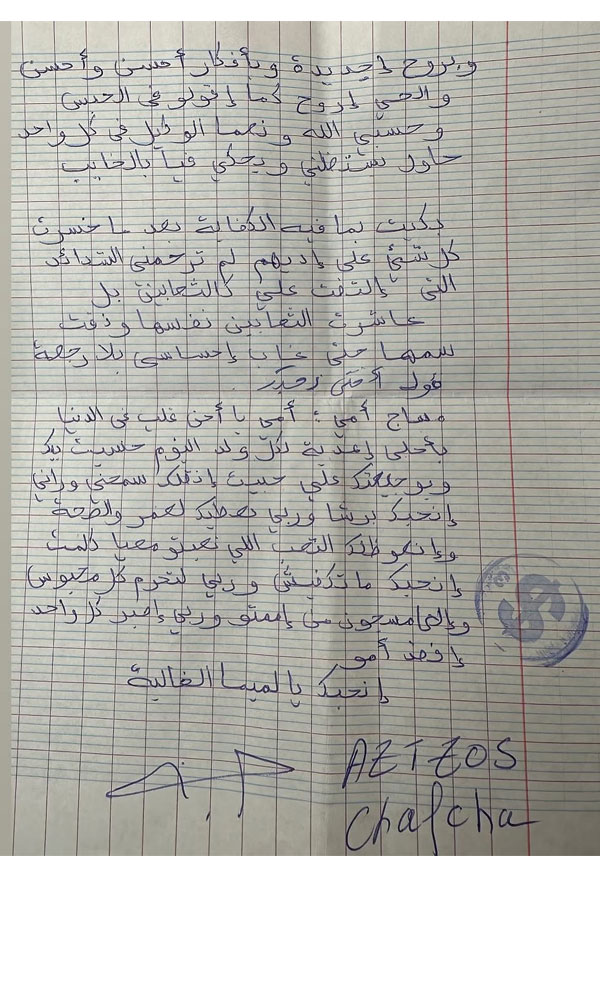 وبروح جديدة وبأفكار أحسن وأحسن
والحي إروح كما إقولو في الحبس
وحسبي الله ونعما الوكيل في كل واحد
حاول يستغلني ويحكي فيا بالخايب
بكيت بما فيه الكفاية بعد ما خسرت
كل شئ على إديهم لم ترحمني الشدائد
التي إلتفت علي كالثعابين بل
عاشرت الثعابين نفسها وذقت
سمها حتى غاب إحساسي بلا رجعة
قول أختي
مساج أمي : أمي يا أحن قلب في الدنيا
يأحلى إغنية لكل ولد اليوم حسيت بيك
وبوجيعتك علي حبيت إنقلك سمحني وراني
إنحبك برشا وربي يعطيك لعمر والصحة
وإنعوظلك التعب اللي تعبتو معيا كلمت
إنحبك ما تكفيش وربي لتحرم كل محبوس
وإلا مسجون من إميمتو وربي إصبر كل واحد
إفقد أمو
إنحبك يا لميما الغالية
AZIZOS
Chafcha
$